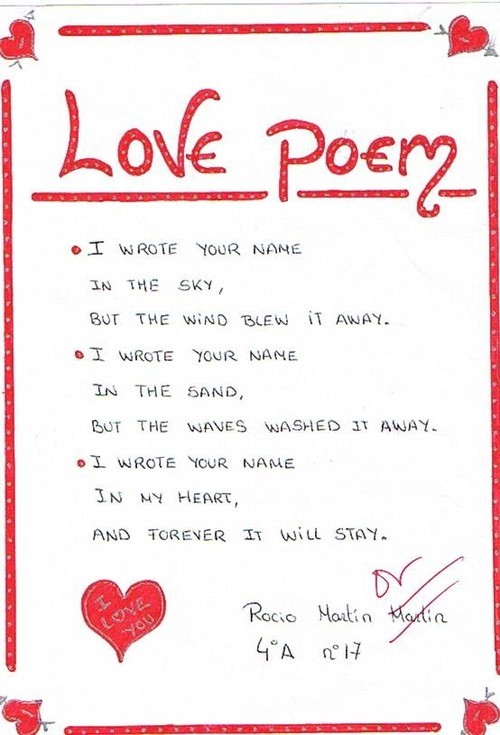 LOVE POEM
I WROTE YOUR NAME
IN THE SKY,
BUT THE WIND BLEW IT AWAY.
I WROTE YOUR NAME
IN THE SAND,
BUT THE WAVES WASHED IT AWAY.
I WROTE YOUR NAME
IN MY HEART,
AND FOREVER IT WILL STAY.
I LOVE YOU
Rocio Martin Martin
4ºA nº17